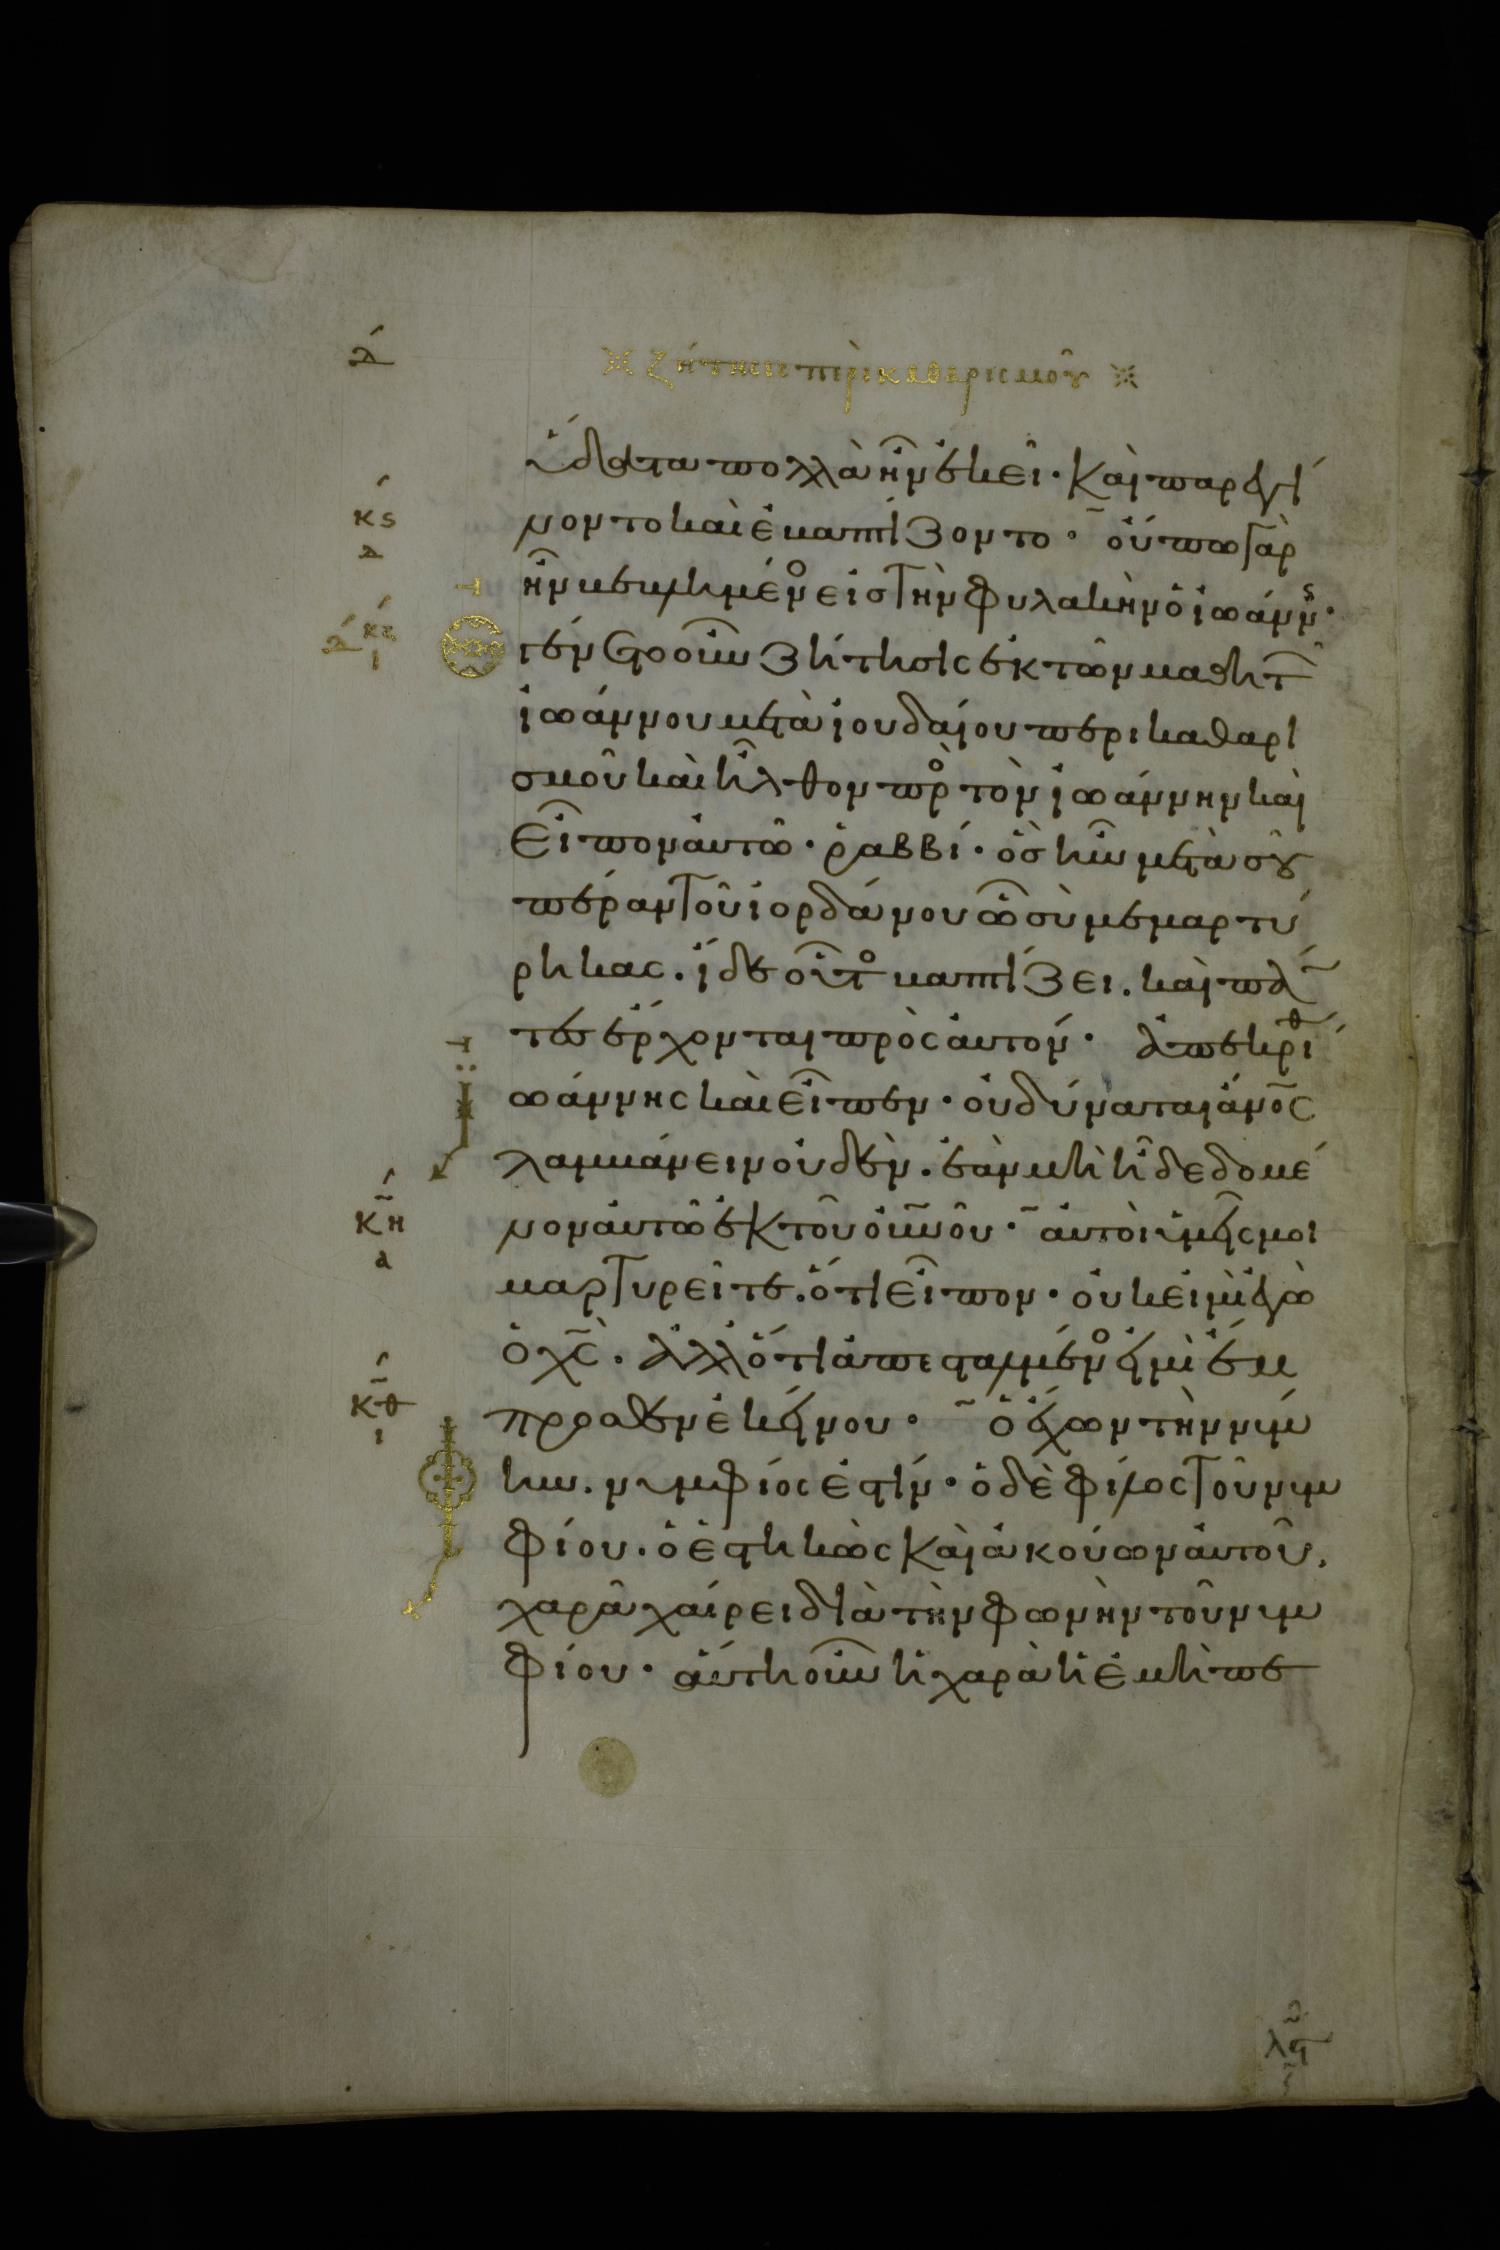 δ
ζήτησις περὶ καθαρισμοῦ
ὕδατα πολλὰ ἦν ἐκεῖ· καὶ παρεγί
κϛ
δ
νοντο καὶ ἐβαπτίζοντο· οὔπω γὰρ
ἦν βεβλημένος εἰς τὴν φυλακὴν ὁ ἰωάννης·
δ κζ
ι
γένετο οὖν ζήτησις ἐκ τῶν μαθητ
ἰωάννου μετὰ ἰουδαίου περι καθαρι
σμοῦ καὶ ἦλθον πρὸς τὸν ἰωάννην καὶ
εἶπον αὐτῶ· ῥαββί· ὃς ἦν μετὰ σοῦ
πέραν τοῦ ἰορδάνου ὧ σὺ μεμαρτύ
ρηκας. ἴδε οὗτος βαπτίζει. καὶ πάν
τες ἔρχονται πρὸς αὐτόν· ἀπεκρίθ ἰ
ωάννης καὶ εἶπεν· οὐ δύναται ἄνος
λαμβάνειν οὐδὲν. ἐὰν μὴ ἦ δεδομέ
κη
α
νον αὐτῶ ἐκ τοῦ οὐνοῦ· αὐτοὶ ὑμεῖς μοι
μαρτυρεῖτε. ὅτι εἶπον· οὐκ εἰμὶ ἐγὼ
ὁ χς. ἀλλ' ὅτι ἀπεσταλμένος εἰμὶ ἔμ
κθ
ι
προσθεν ἐκείνου· ὁ ἔχων τὴν νύμ
φην. νυμφίος ἐστίν· ὁ δὲ φίλος τοῦ νυμ
φίου. ὁ ἑστηκὼς καὶ ἀκούων αὐτοῦ,
χαρᾶ χαίρει διὰ τὴν φωνὴν τοῦ νυμ
φίου· αὕτη οὖν ἡ χαρὰ ἡ ἐμὴ πε